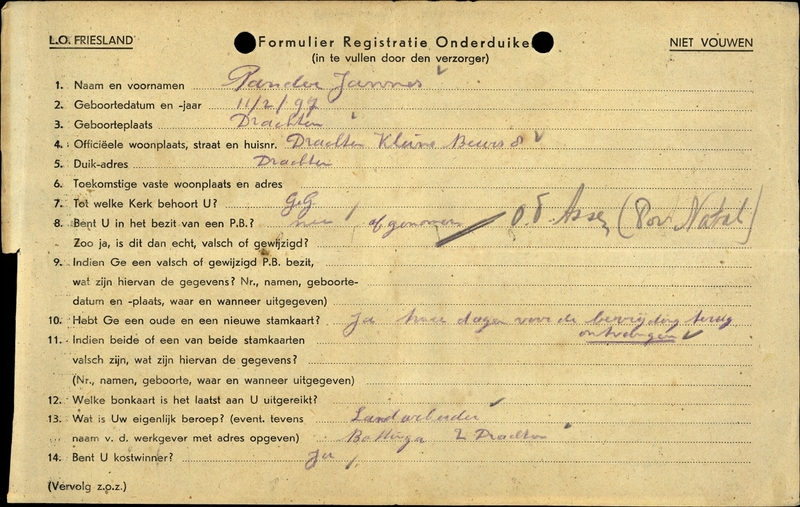 L.O. FRIESLAND
Formulier Registratie Onderduike
NIET VOUWEN
(in te vullen door den verzorger)
1. Naam en voornamen Pander Jannes
2. Geboortedatum en -jaar 11/2/97
3. Geboorteplaats Drachten
4. Officiëele woonplaats, straat en huisnr. Drachten Kleine Beurs 8
5. Duik-adres Drachten
6. Toekomstige vaste woonplaats en adres
7. Tot welke Kerk behoort U? G.G
8. Bent U in het bezit van een P.B.? nee, afgenomen O.T. Assen (Pov. Natal)
Zoo ja, is dit dan echt, valsch of gewijzigd?
9. Indien Ge een valsch of gewijzigd P.B. bezit,
wat zijn hiervan de gegevens? Nr., namen, geboorte-
datum en -plaats, waar en wanneer uitgegeven)
10. Hebt Ge een oude en een nieuwe stamkaart? Ja twee dagen voor de bevrijding terug
ontvangen
11. Indien beide of een van beide stamkaarten
valsch zijn, wat zijn hiervan de gegevens?
(Nr., namen, geboorte, waar en wanneer uitgegeven)
12. Welke bonkaart is het laatst aan U uitgereikt?
13. Wat is Uw eigenlijk beroep? (event. tevens Landarbeider
naam v. d. werkgever met adres opgeven) Bottinga Z Drachten
14. Bent U kostwinner? Ja
(Vervolg z.o.z.)